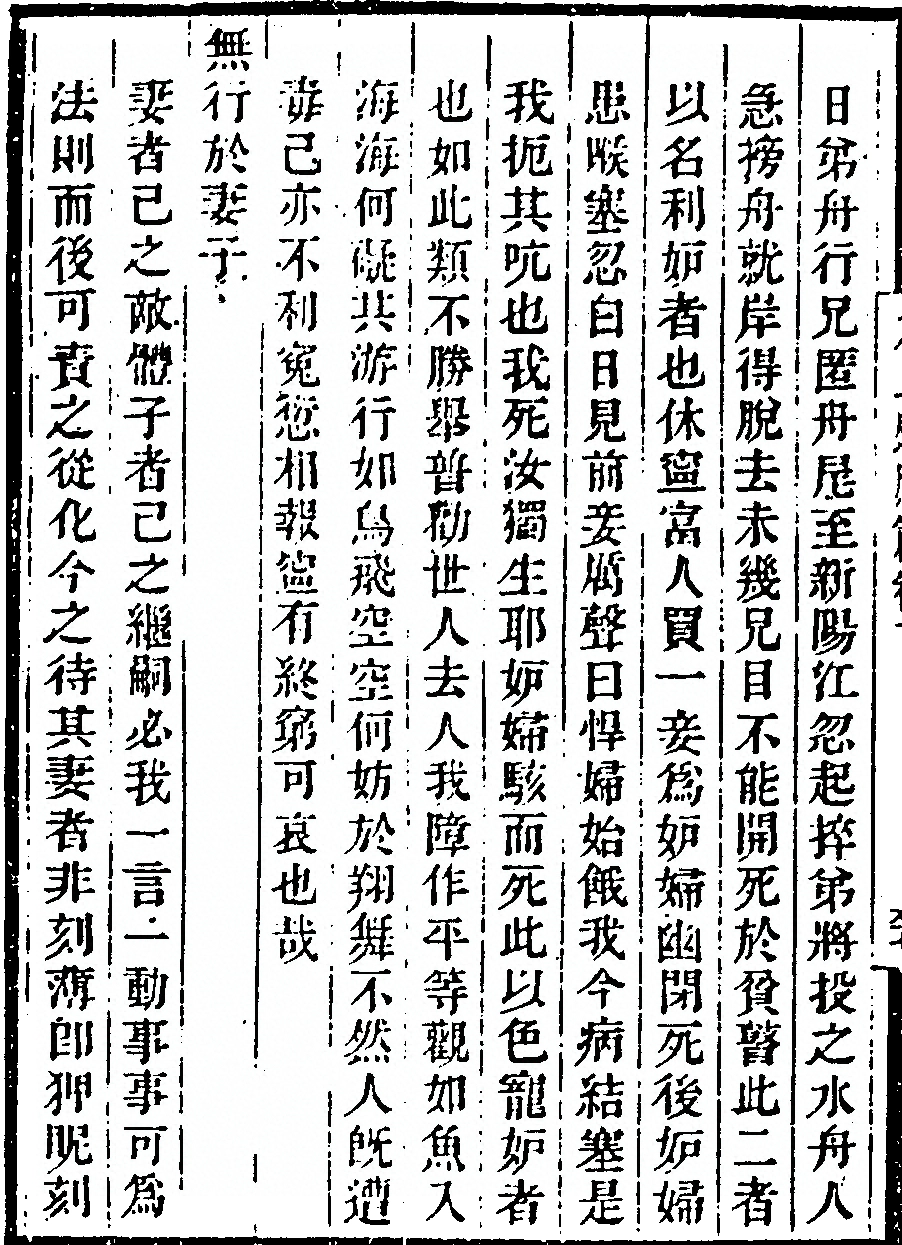 日弟舟行兄匿舟尾至新陽江忽起捽弟將投之水舟人
急搒舟就岸得脫去未幾兄目不能開死於貧瞽此二者
以名利妒者也休寧富人買一妾爲妒婦幽閉死後妒婦
患喉塞忽白日見前妾厲聲曰悍婦始餓我今病結塞是
我扼其吭也我死汝獨生耶妒婦駭而死此以色寵妒者
也如此類不勝舉普勸世人去人我障作平等觀如魚入
海海何礙共游行如鳥飛空空何妨於翔舞不然人旣遭
毒己亦不利寃愆相報寧有終窮可哀也哉
無行於妻子
妻者己之敵體子者己之繼嗣必我一言一動事事可爲
法則而後可責之從化今之待其妻者非刻薄卽狎昵刻